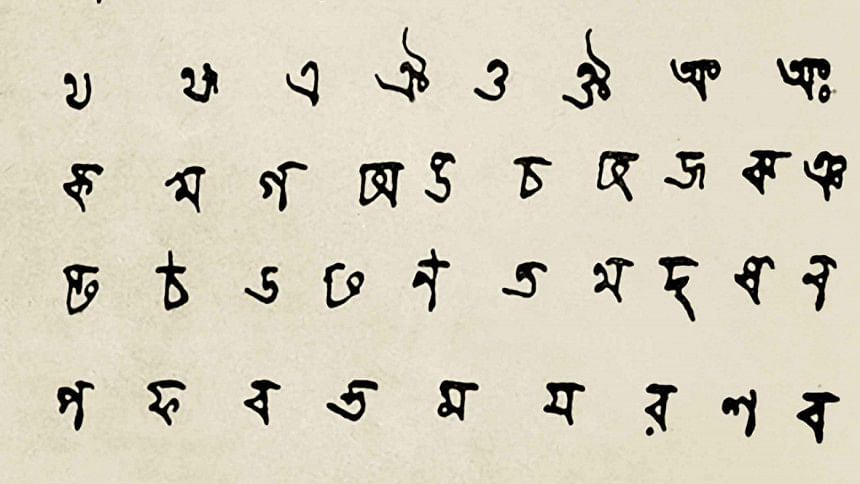 এ ঐ ও ঔ অং অঃ
ক খ গ ঘ ঙ চ ছ জ ঝ ঞ
ট ঠ ড ঢ ণ ত থ দ ধ ন
প ফ ব ভ ম য র ল ব